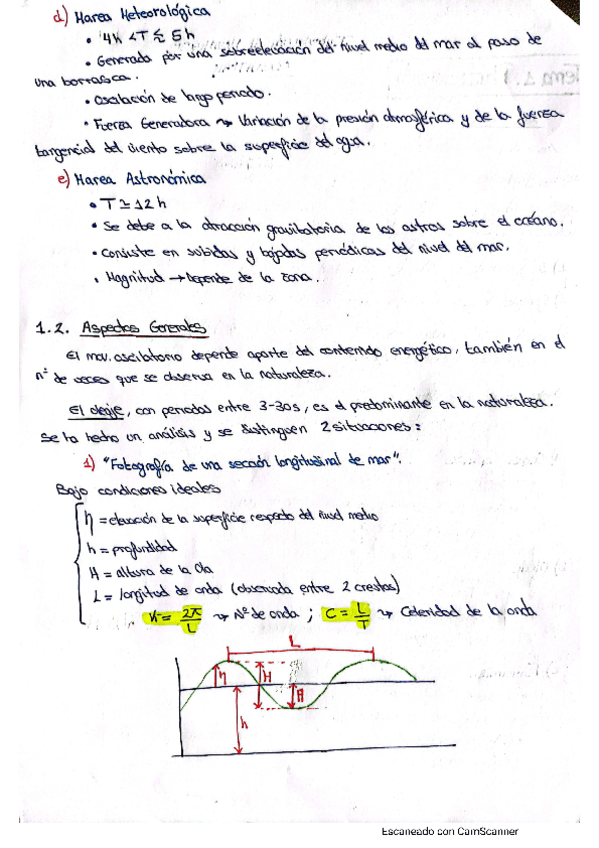 d) Marea Meteorológica
• 4h < T ≲ 5h
• Generada por una sobreelevación del nivel medio del mar al paso de
una borrasca.
• Oscilación de largo periodo.
• Fuerza Generadora → Variación de la presión atmosférica y de la fuerza
tangencial del viento sobre la superficie del agua.
e) Marea Astronómica
• T ≃ 12 h
• Se debe a la atracción gravitatoria de los astros sobre el océano.
• Consiste en subidas y bajadas periódicas del nivel del mar.
• Magnitud → Depende de la zona.
1.2. Aspectos Generales
El mov. oscilatorio depende aparte del contenido energético, también en el
nº de veces que se observa en la naturaleza.
El oleaje, con periodos entre 3-30s, es el predominante en la naturaleza.
Se ha hecho un análisis y se distinguen 2 situaciones:
1) "Fotografía de una sección longitudinal de mar".
Bajo condiciones ideales
η = elevación de la superficie respecto del nivel medio
h = profundidad
H = altura de la ola
L = longitud de onda (observada entre 2 crestas)
K = 2π/L → Nº de onda ; C = L/T → Celeridad de la onda
L
η H A
h
Escaneado con CamScanner